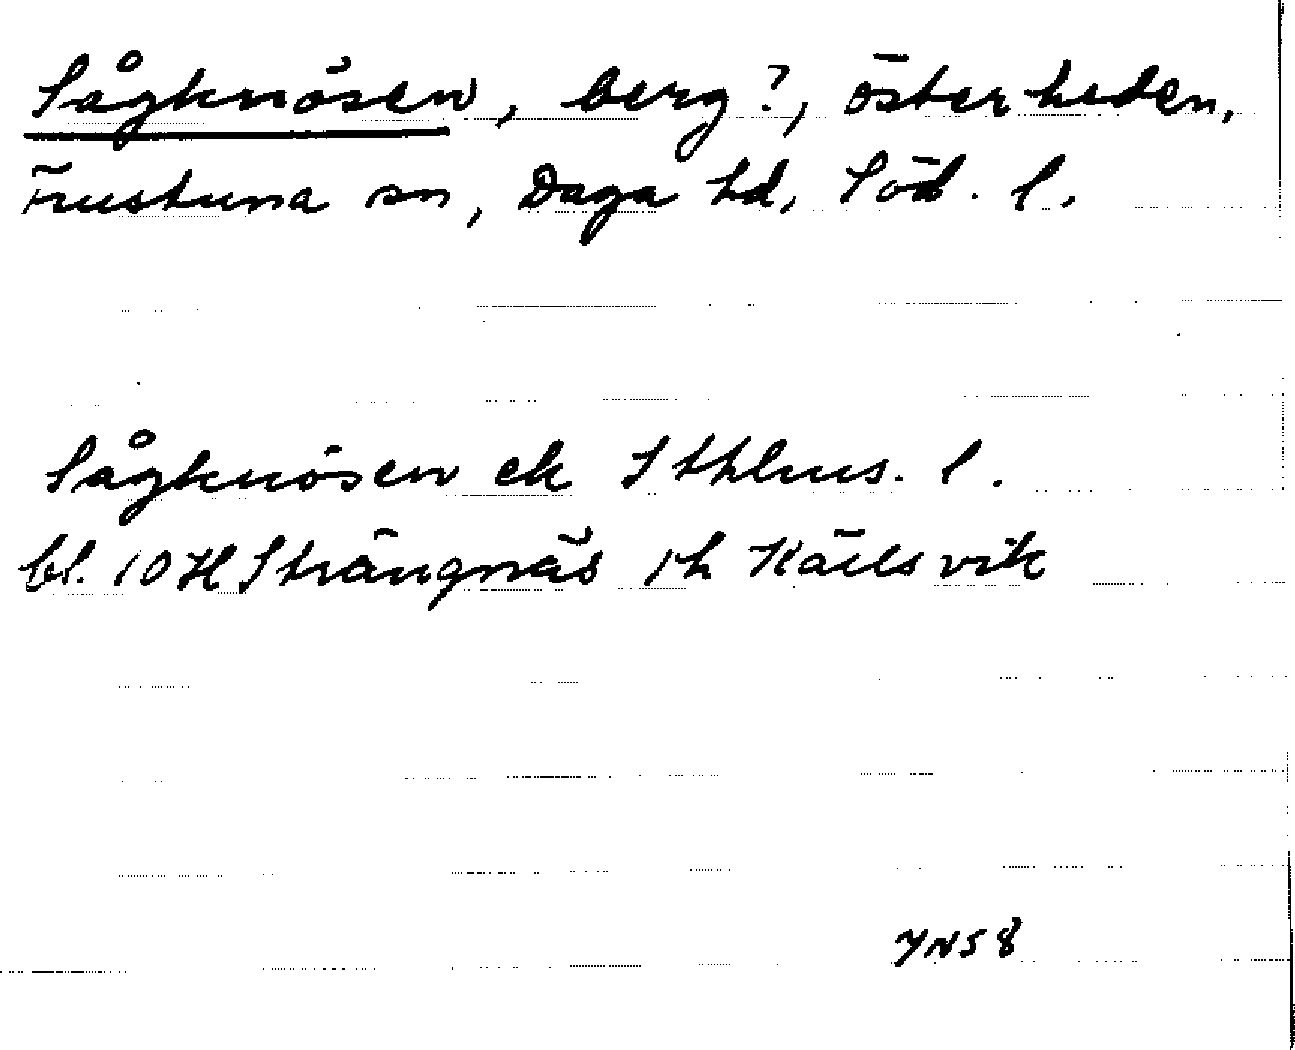 Sågknösen, berg?, österheden,
Frustuna sn, Daga hd, Söd. l.
Sågknösen ek Sthlms. l.
bl. 10 H Strängnäs rh Källsvik
YNS 8